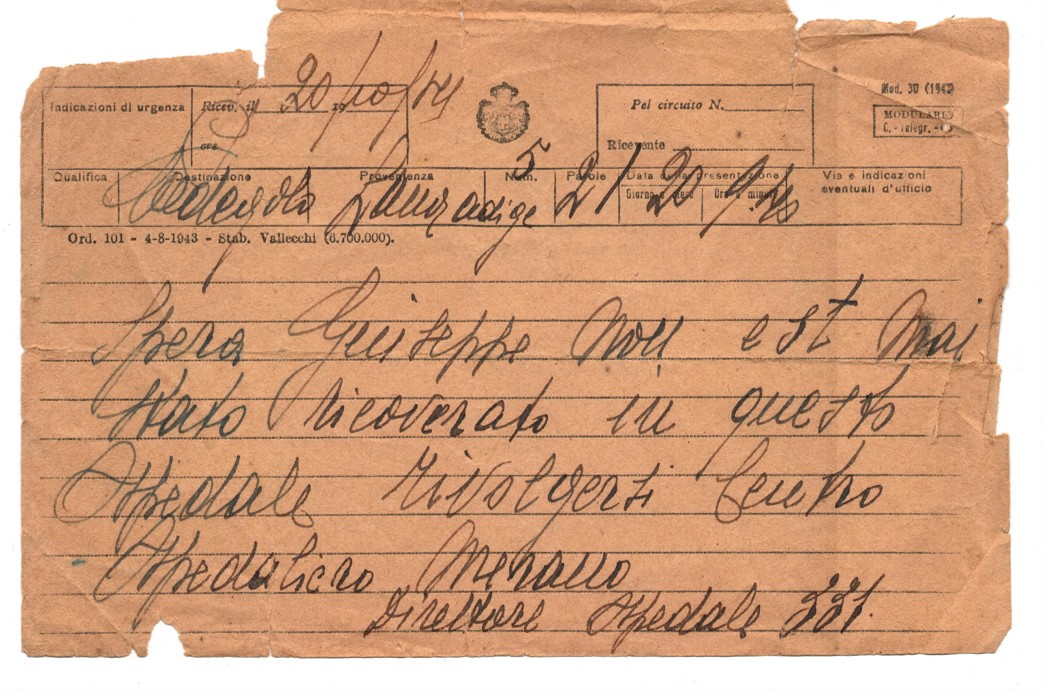 Mod. 30 (1942)
MODULARIO
C. - Telegr. -
Indicazioni di urgenza
Ricev. il 20/10/44
ore
Pel circuito N.
Ricevente
Qualifica Destinazione Provenienza Num. Parole Data della presentazione Via e indicazioni eventuali d'ufficio
Giorno e mese Ore e minuti
5 21 20
Ord. 101 - 4-8-1943 - Stab. Vallecchi (6.700.000).
Spera Giuseppe non est mai
stato ricoverato in questo
Ospedale rivolgersi Centro
Ospedaliero Merano
Direttore Ospedale 331.